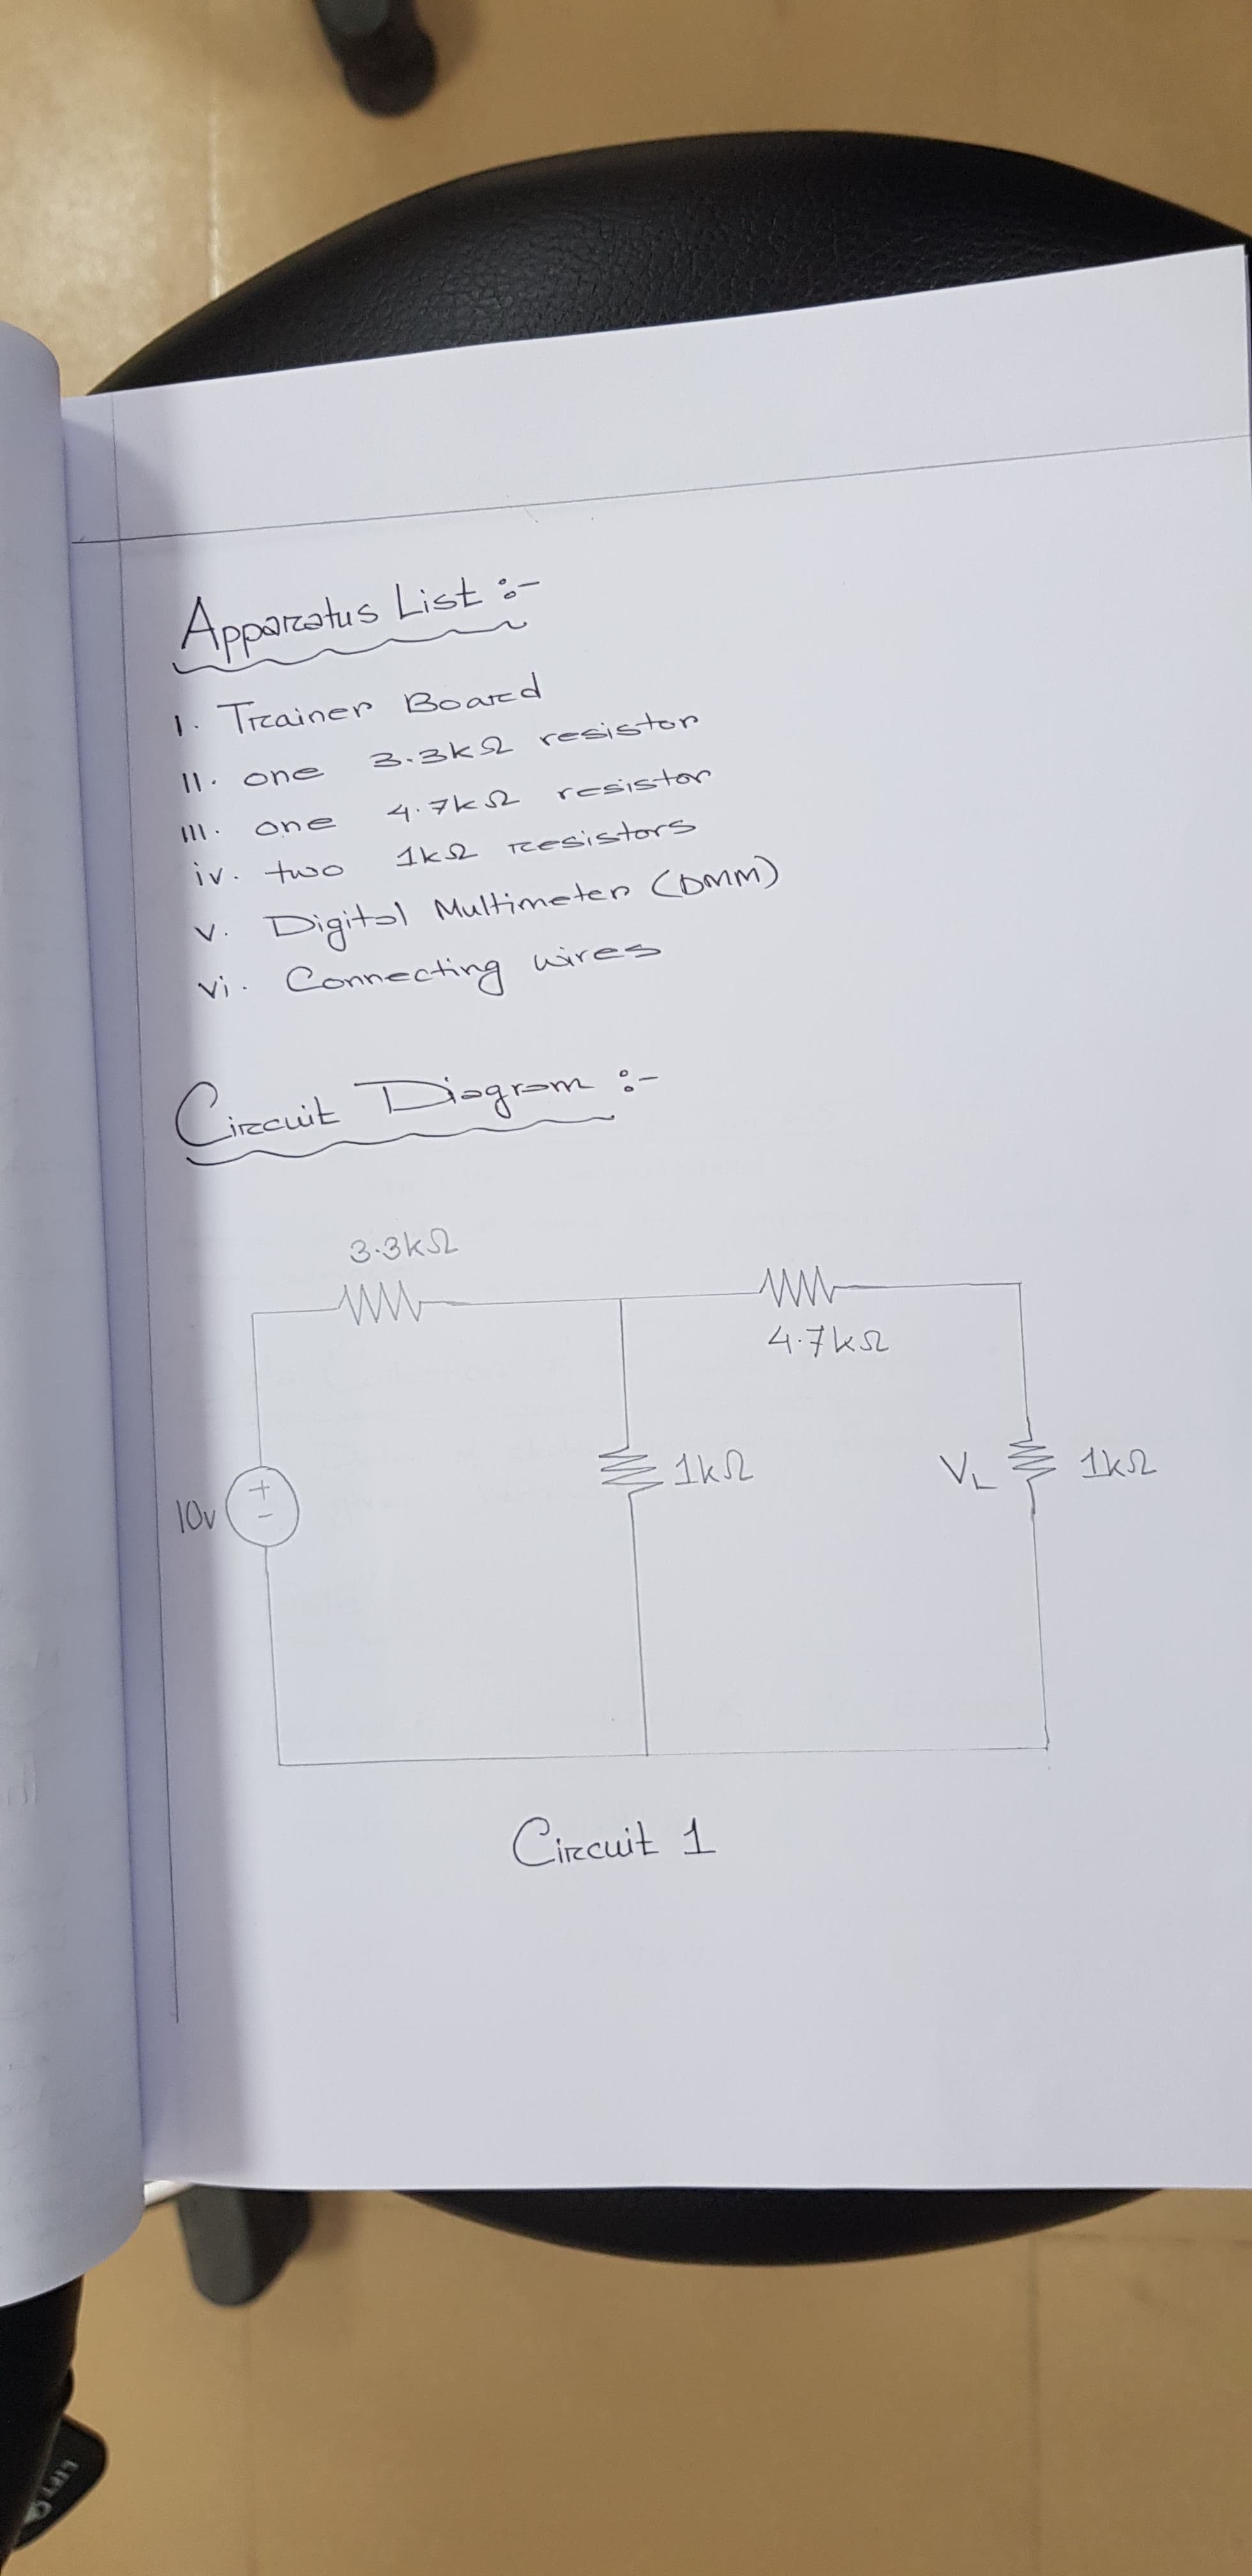 Apparatus List :-
I. Trainer Board
II. one 3.3kΩ resistor
III. one 4.7kΩ resistor
iv. two 1kΩ resistors
v. Digital Multimeter (DMM)
vi. Connecting wires
Circuit Diagram :-
3.3kΩ
4.7kΩ
10v
+
-
1kΩ
VL
1kΩ
Circuit 1
LIFT